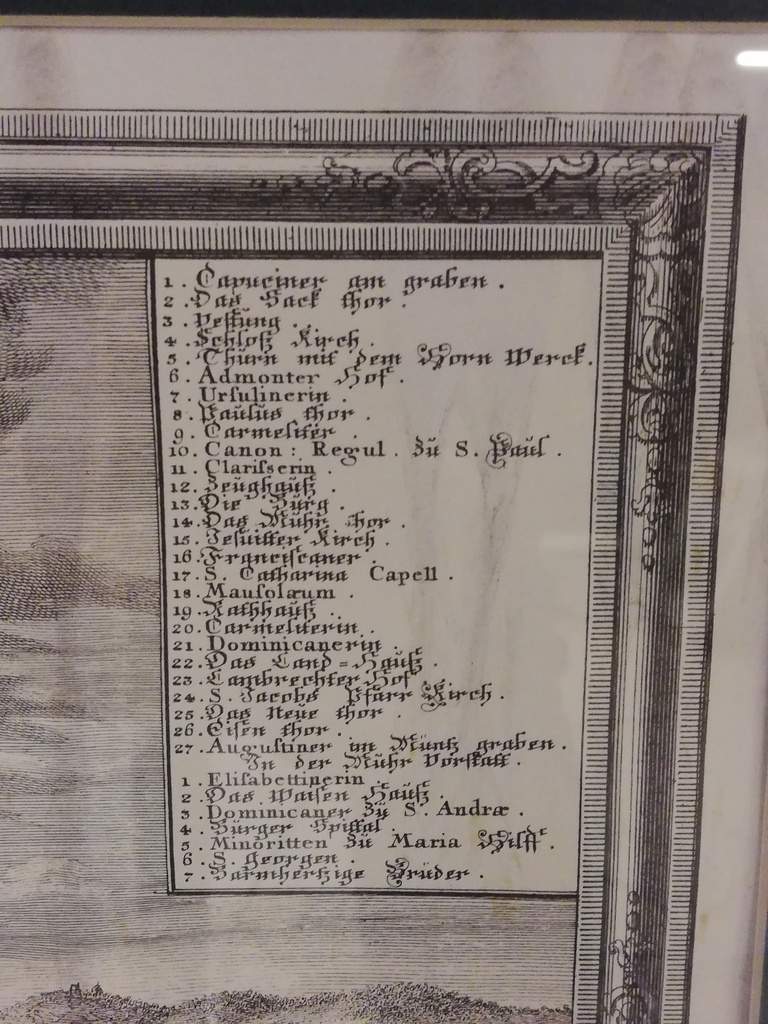 1. Capuciner am graben.
2. Das Sack thor.
3. Vestung.
4. Schloß Kirch.
5. Thurn mit dem Horn Werck.
6. Admonter Hof.
7. Urſulinerin.
8. Paulus thor.
9. Carmeliter.
10. Canon: Regul. Zu S. Paul.
11. Clariſſerin.
12. Zeughauß.
13. Die Burg.
14. Das Muhr thor.
15. Jesuitter Kirch.
16. Franciſcaner.
17. S. Catharina Capell.
18. Mauſolæum.
19. Rathhauß.
20. Carmeliterin.
21. Dominicanerin.
22. Das Land=Hauß.
23. Lambrechter Hof
24. S. Jacobs Pfarr Kirch.
25. Das Neue thor.
26. Eisen thor.
27. Auguſtiner im Müntz graben.
In der Muhr Vorſtatt.
1. Eliſabettinerin.
2. Das Waisen Hauß.
3. Dominicaner Zu S. Andræ.
4. Burger Spittal.
5. Minoritten Zu Maria Hilff.
6. S. Georgen.
7. Barmhertzige Brüder.